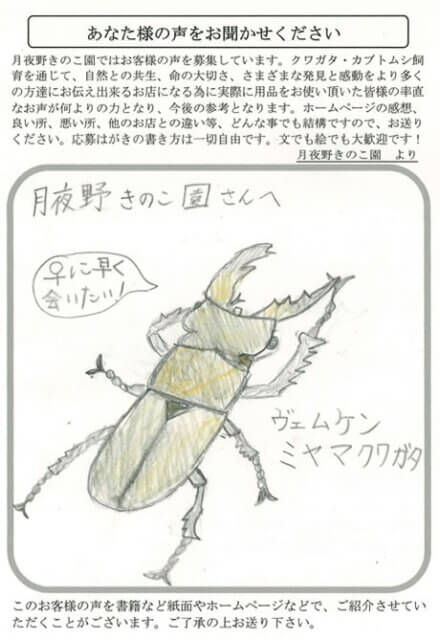 あなた様の声をお聞かせください
月夜野きのこ園ではお客様の声を募集しています。クワガタ・カブトムシ飼
育を通じて、自然との共生、命の大切さ、さまざまな発見と感動をより多く
の方達にお伝え出来るお店になる為に実際に用品をお使い頂いた皆様の率直
なお声が何よりの力となり、今後の参考となります。ホームページの感想、
良い所、悪い所、他のお店との違い等、どんな事でも結構ですので、お送り
ください。応募はがきの書き方は一切自由です。文でも絵でも大歓迎です！
月夜野きのこ園　より
月夜野きのこ園さんへ
♀に早く
会いたい!
ヴェムケン
ミヤマクワガタ
このお客様の声を書籍など紙面やホームページなどで、ご紹介させてい
ただくことがございます。ご了承の上お送り下さい。